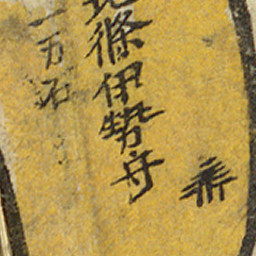 北條伊勢守
一万石